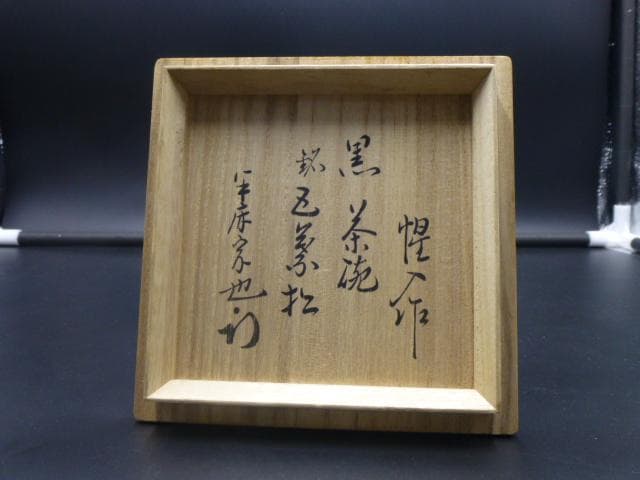 惺入作
黒 茶碗
銘 五葉松
半床宗也